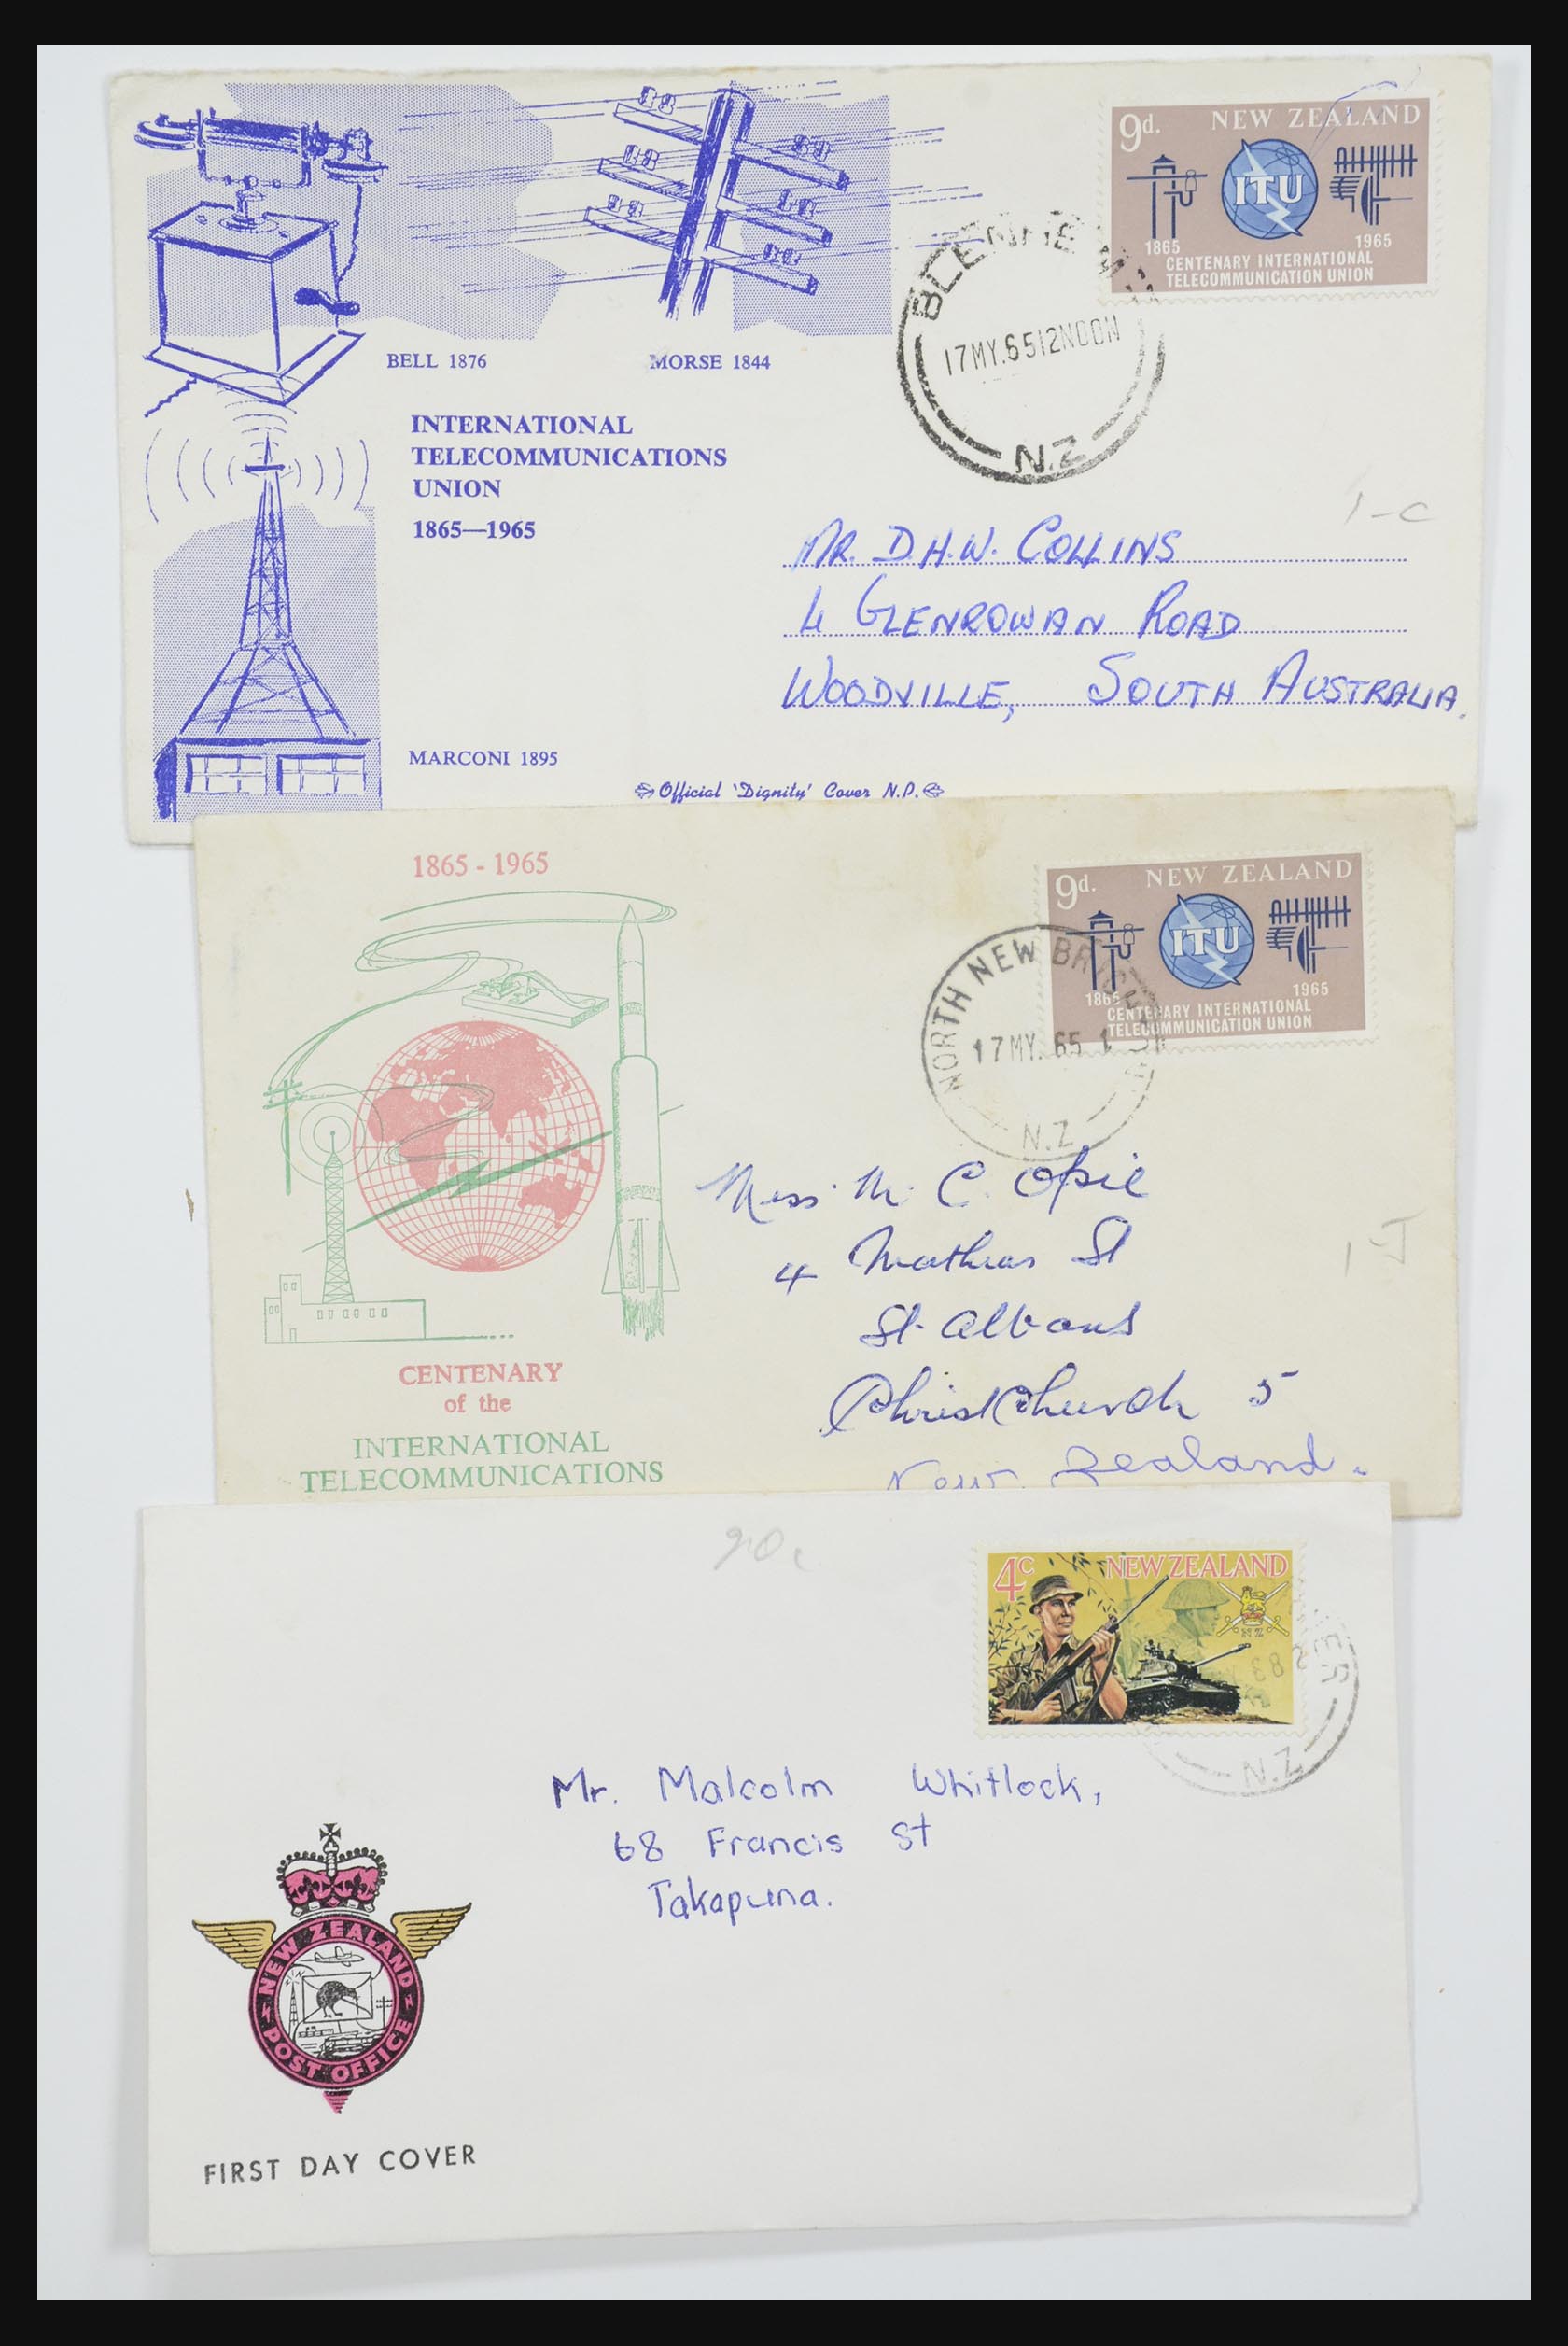 9d. NEW ZEALAND
ITU
1865 1965
CENTENARY INTERNATIONAL
TELECOMMUNICATION UNION
BLENHEIM
17MY.65 12NOON
N.Z
BELL 1876
MORSE 1844
INTERNATIONAL
TELECOMMUNICATIONS
UNION
1865—1965
1-C
MR. D.H.W. COLLINS
4 GLENROWAN ROAD
WOODVILLE, SOUTH AUSTRALIA.
MARCONI 1895
Official 'Dignity' Cover N.P.
1865 - 1965
9d. NEW ZEALAND
ITU
1865 1965
CENTENARY INTERNATIONAL
TELECOMMUNICATION UNION
NORTH NEW BRIGHTON
17MY. 65 1
N.Z
Miss M. C. Opie
4 Mathias St
St. Albans
Christchurch 5
New Zealand.
CENTENARY
of the
INTERNATIONAL
TELECOMMUNICATIONS
4c NEW ZEALAND
NZ
N.Z
Mr. Malcolm Whitlock,
68 Francis St
Takapuna.
NEW ZEALAND
POST OFFICE
FIRST DAY COVER